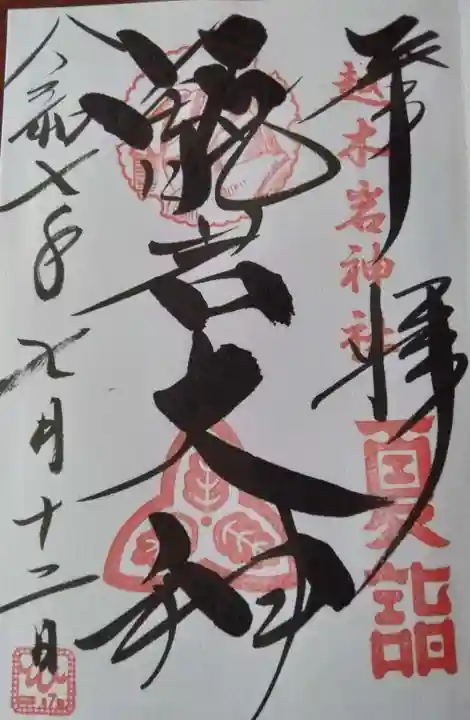 奉拝
越木岩神社
夏詣
甑岩大神
令和七年七月十二日